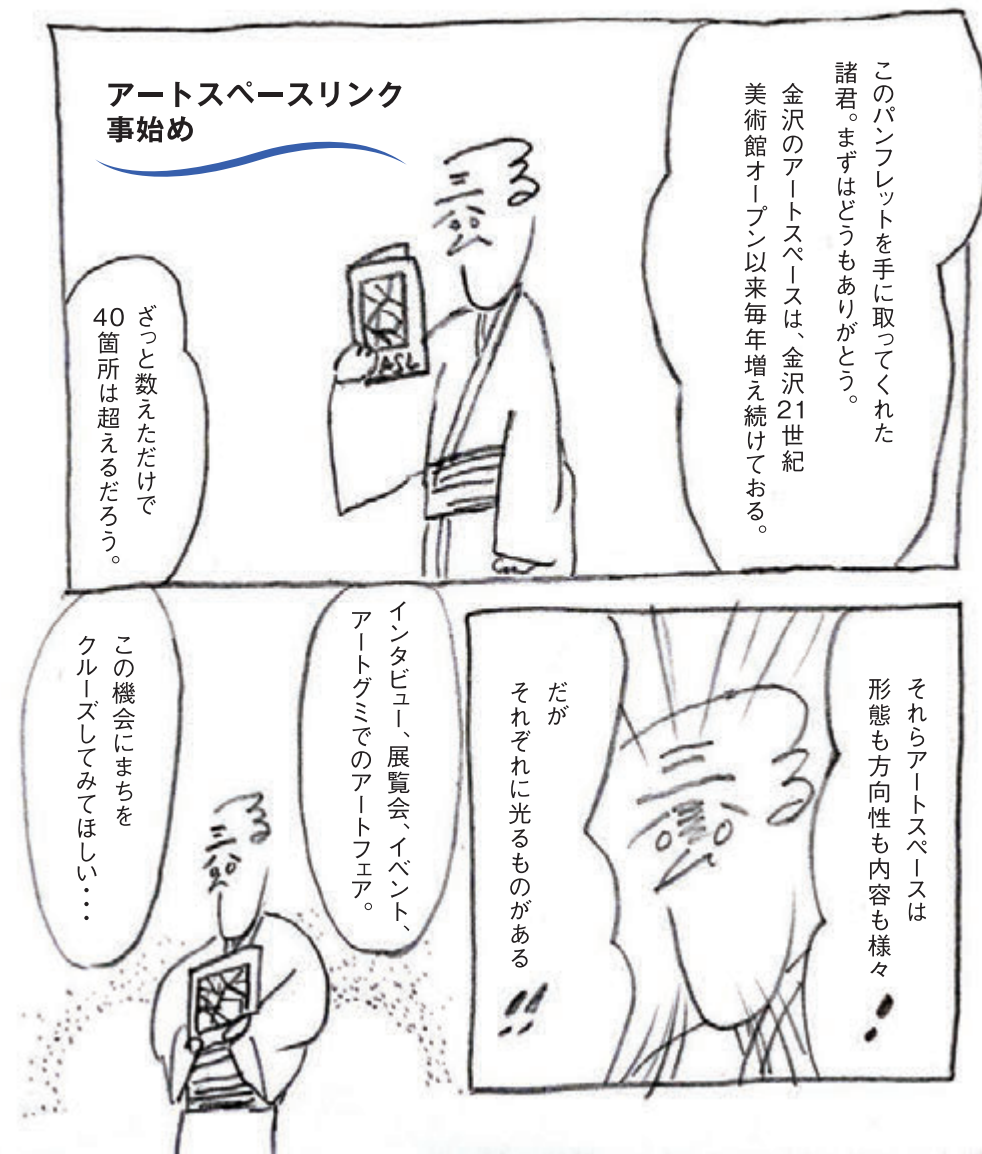 アートスペースリンク
事始め
このパンフレットを手に取ってくれた
諸君。まずはどうもありがとう。
金沢のアートスペースは、金沢21世紀
美術館オープン以来毎年増え続けておる。
ざっと数えただけで
40箇所は超えるだろう。
それらアートスペースは
形態も方向性も内容も様々
!
だが
それぞれに光るものがある
!!
インタビュー、展覧会、イベント、
アートグミでのアートフェア。
この機会にまちを
クルーズしてみてほしい・・・